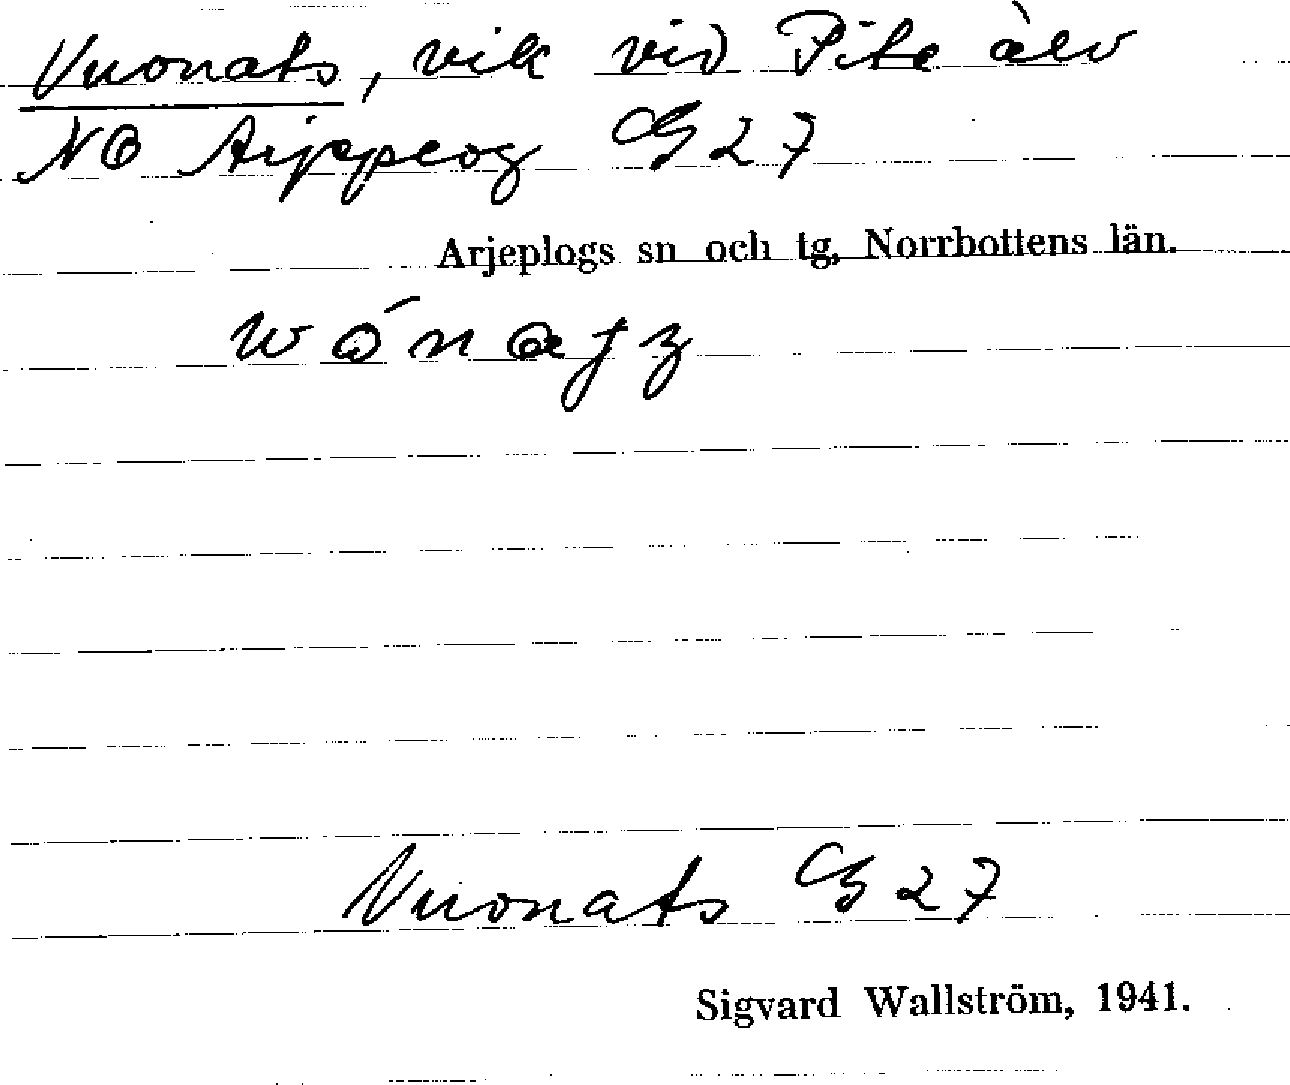 Vuonats, vik vid Pite älv
NO Arjeplog G 27
Arjeplogs sn och tg, Norrbottens län.
Vuonats G 27
Sigvard Wallström, 1941.